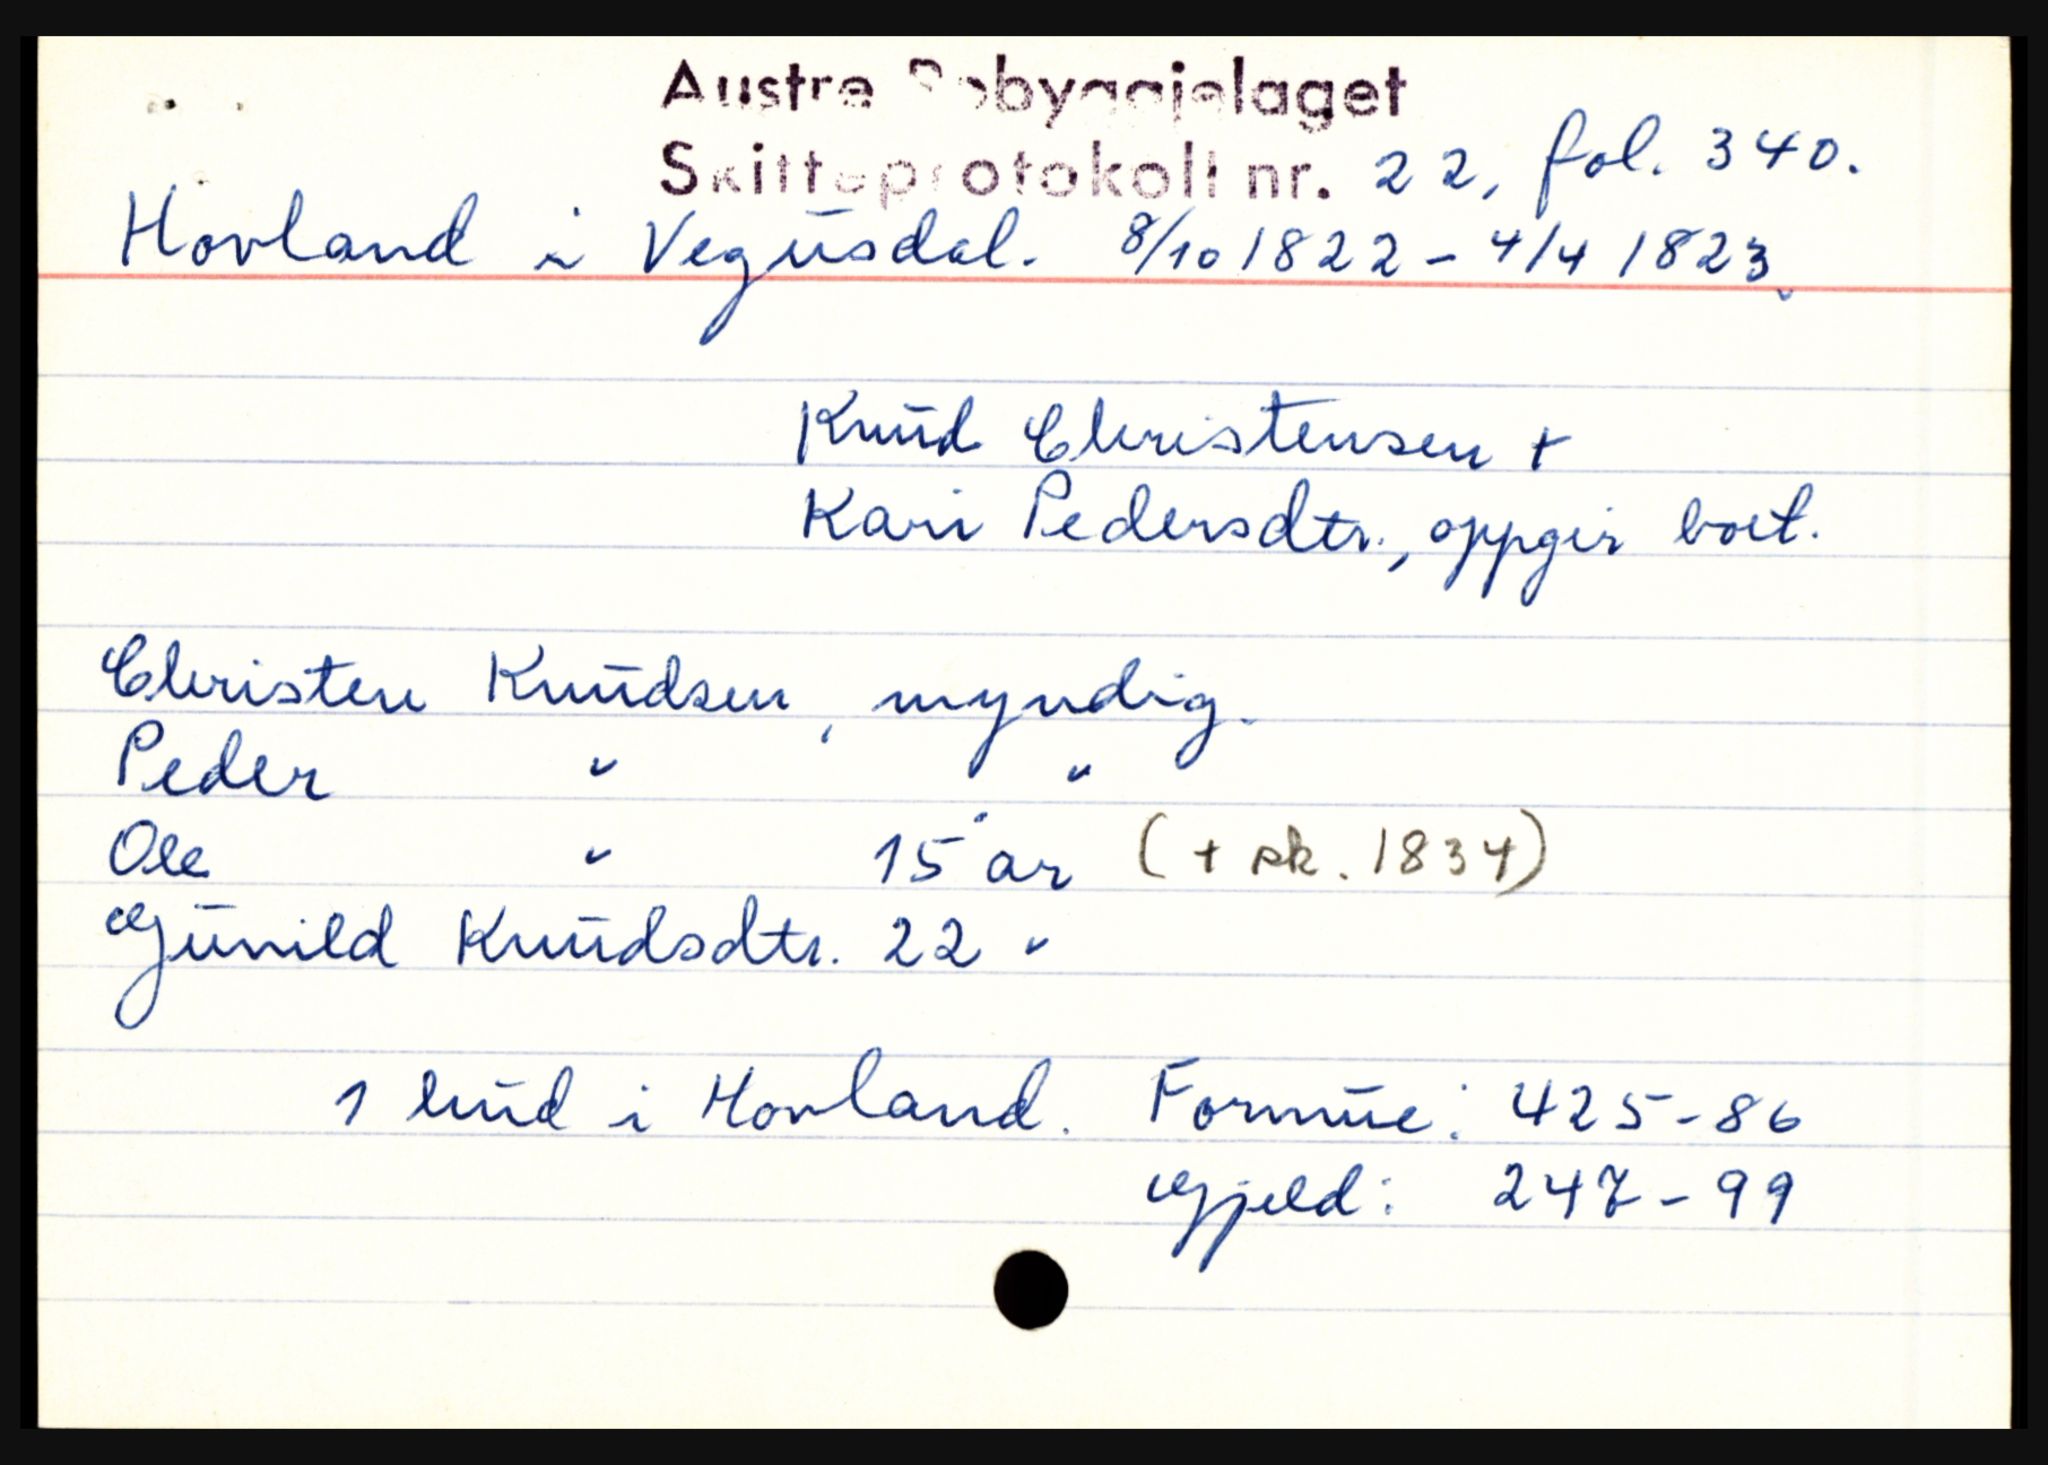 Austre Robyggjelaget
Skifteprotokoll nr. 22, fol. 340.
Hovland i Vegusdal. 8/10 1822 - 4/4 1823
Knud Christensen +
Kari Pedersdtr., oppgir boet.
Christen Knudsen, myndig.
Peder " "
Ole " 15 år (+ sk. 1834)
Gunild Knudsdtr. 22 "
1 hud i Hovland. Formue: 425-86
Gjeld: 247-99